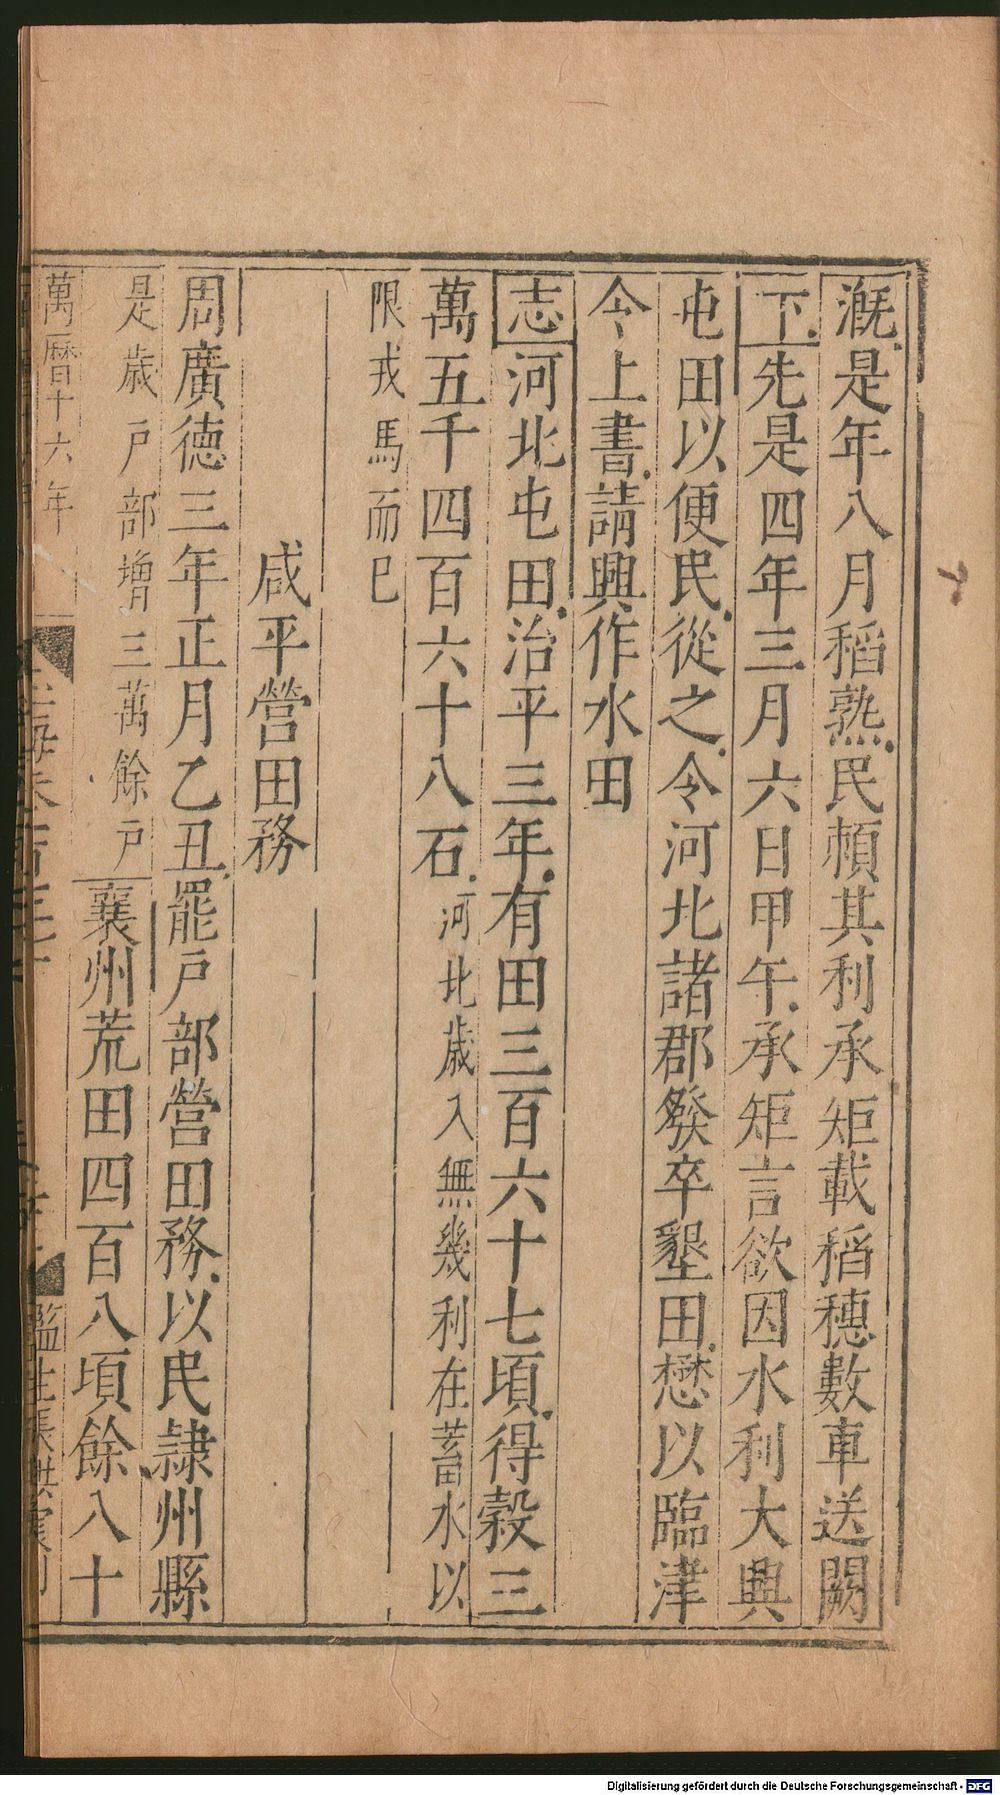 溉是年八月稻熟民賴其利承矩載稻穗數車送闕
下先是四年三月六日甲午承矩言欲因水利大興
屯田以便民從之令河北諸郡發卒墾田懋以臨津
令上書請興作水田
志河北屯田治平三年有田三百六十七頃得穀三
萬五千四百六十八石河北歲入無幾利在蓄水以
限戎馬而已
咸平營田務
周廣德三年正月乙丑罷戶部營田務以民隸州縣
是歲戶部增三萬餘戶襄州荒田四百八頃餘八十
萬曆十六年
監生
Digitalisierung gefördert durch die Deutsche Forschungsgemeinschaft - DFG